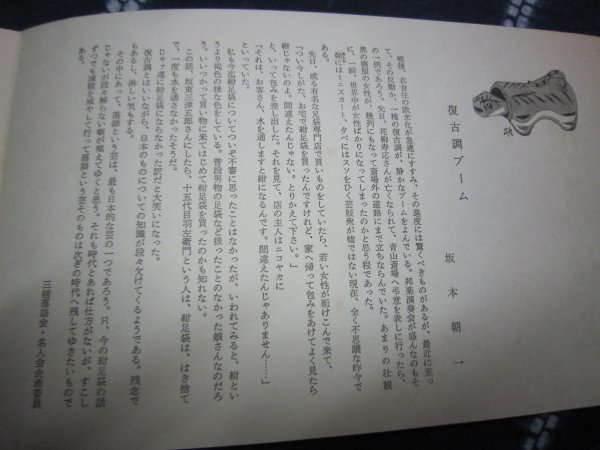 復古調ブーム
坂本朝一
戦後、衣食住の欧米化が急速にすすみ、その進度には驚くべきものがあるが、最近に至っ
て、その反動か、一種の復古調が、静かなブームをよんでいる。邦楽演奏会が盛んなのもそ
の一例であろう。先日、花柳寿応さんが亡くなられて、青山斎場へ弔意を表しに行ったら、
黒の喪服の女性が、幾列にもなって斎場外の道路にまで立ちならんでいた。あまりの壮観
に、一瞬、世界中が女性ばかりになってしまったのかと思う程であった。
朝にはミニスカート、夕べにはスソをひく芸鼓衆が嘘ではない現在、全く不思議な昨今で
ある。
先日、或る有名な足袋専門店で買いものをしていたら、若い女性が駈けこんで来て、
「つい今しがた、お宅で紺足袋を買ったんですけれど、家へ帰って包みをあけてよく見たら
紺じゃないのよ。間違えたんじゃない。とりかえて下さい。」
と、いって包みを差し出した。それを見て、店の主人はニコヤカに
「それは、お客さん、水を通しますと紺になるんです。間違えたんじゃありません……」
といっていた。
私も今迄紺足袋についてついぞ不審に思ったことはなかったが、いわれてみると、紺とい
うより褐色の様な色をしている。普段男物の足袋など扱ったことのなかった娘さんなのだろ
う。いいつかって買い物に来てはじめて紺足袋を買ったのかも知れない。
この話、坂東三津五郎さんにしたら、十五代目羽左衛門という人は、紺足袋は、はき捨て
で、一度も水を通さなかったそうだ。
じゃァ遂に紺足袋にならなかった訳だと大笑いになった。
復古調とはいいながら、日本のものについての知識が段々欠けてくるようである。残念で
もあるし、淋しい気もする。
その中にあって、落語という芸は、最も日本的な芸の一つであろう。只、今の紺足袋の話
じゃないが段々解らない噺が増えてゆくと思う。それも時代とあれば仕方がないが、すこし
ずつでも演題を殖やして行って落語という芸そのものは次ぎの時代へ残してゆきたいもので
ある。
三越落語会・名人会企画委員